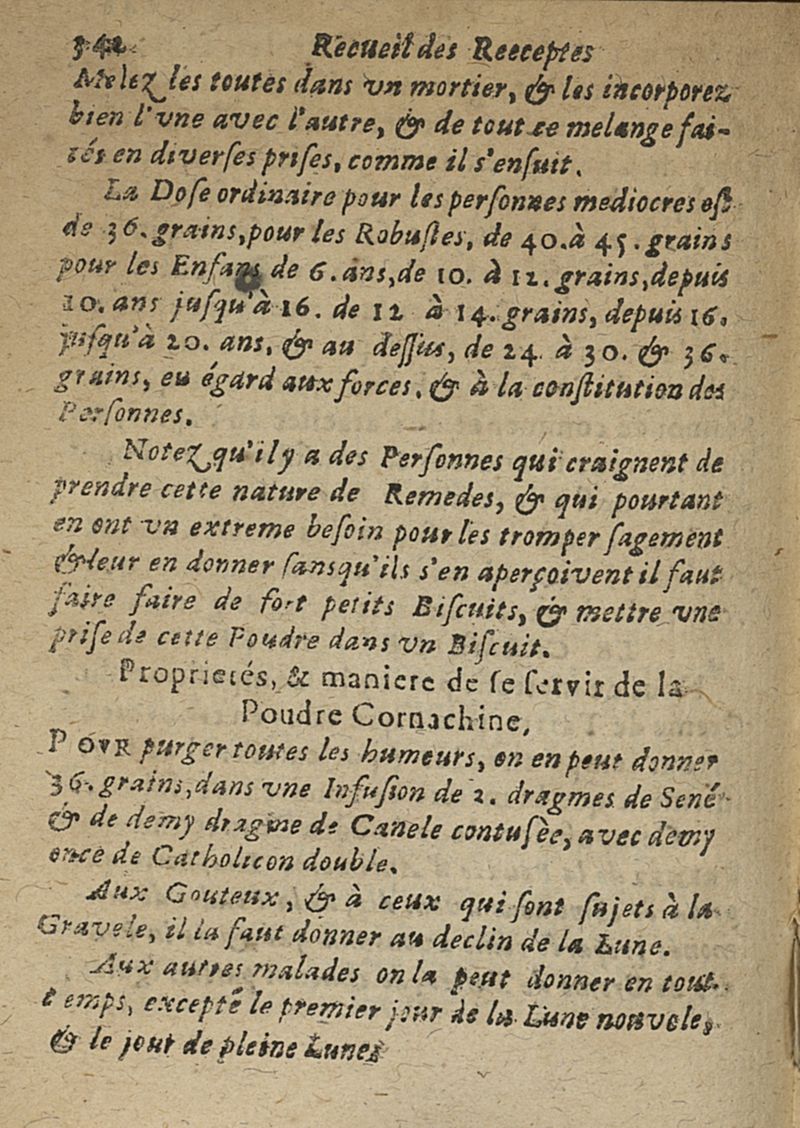 342 Recueil des Receeptes
Melez les toutes dans vn mortier, & les incorporez
bien l'vne avec l'autre, & de tout ce melange fai-
tés en diverses prises, comme il s'ensuit.
La Dose ordinaire pour les personnes mediocres est
de 36. grains, pour les Robustes, de 40. à 45. grains
pour les Enfans de 6. ans, de 10. à 12. grains, depuis
10. ans jusqu'à 16. de 12 à 14. grains, depuis 16.
jusqu'à 20. ans, & au dessus, de 24 à 30. & 36.
grains, eu égard aux forces, & à la constitution des
Personnes.
Notez qu'il y a des Personnes qui craignent de
prendre cette nature de Remedes, & qui pourtant
en ont vn extreme besoin pour les tromper sagement
& leur en donner sans qu'ils s'en aperçoivent il faut
faire faire de fort petits Biscuits, & mettre vne
prise de cette Poudre dans vn Biscuit.
Proprietés, & maniere de se servir de la
Poudre Cornachine,
POVR purger toutes les humeurs, on en peut donner
36. grains, dans vne Infusion de 2. dragmes de Sené
& de demy dragme de Canele contusèe, avec demy
once de Catholicon double.
Aux Gouteux, & à ceux qui sont sujets à la
Gravele, il la faut donner au declin de la Lune.
Aux autres malades on la peut donner en tout
temps, excepté le premier jour de la Lune nouvele,
& le jour de pleine Lune